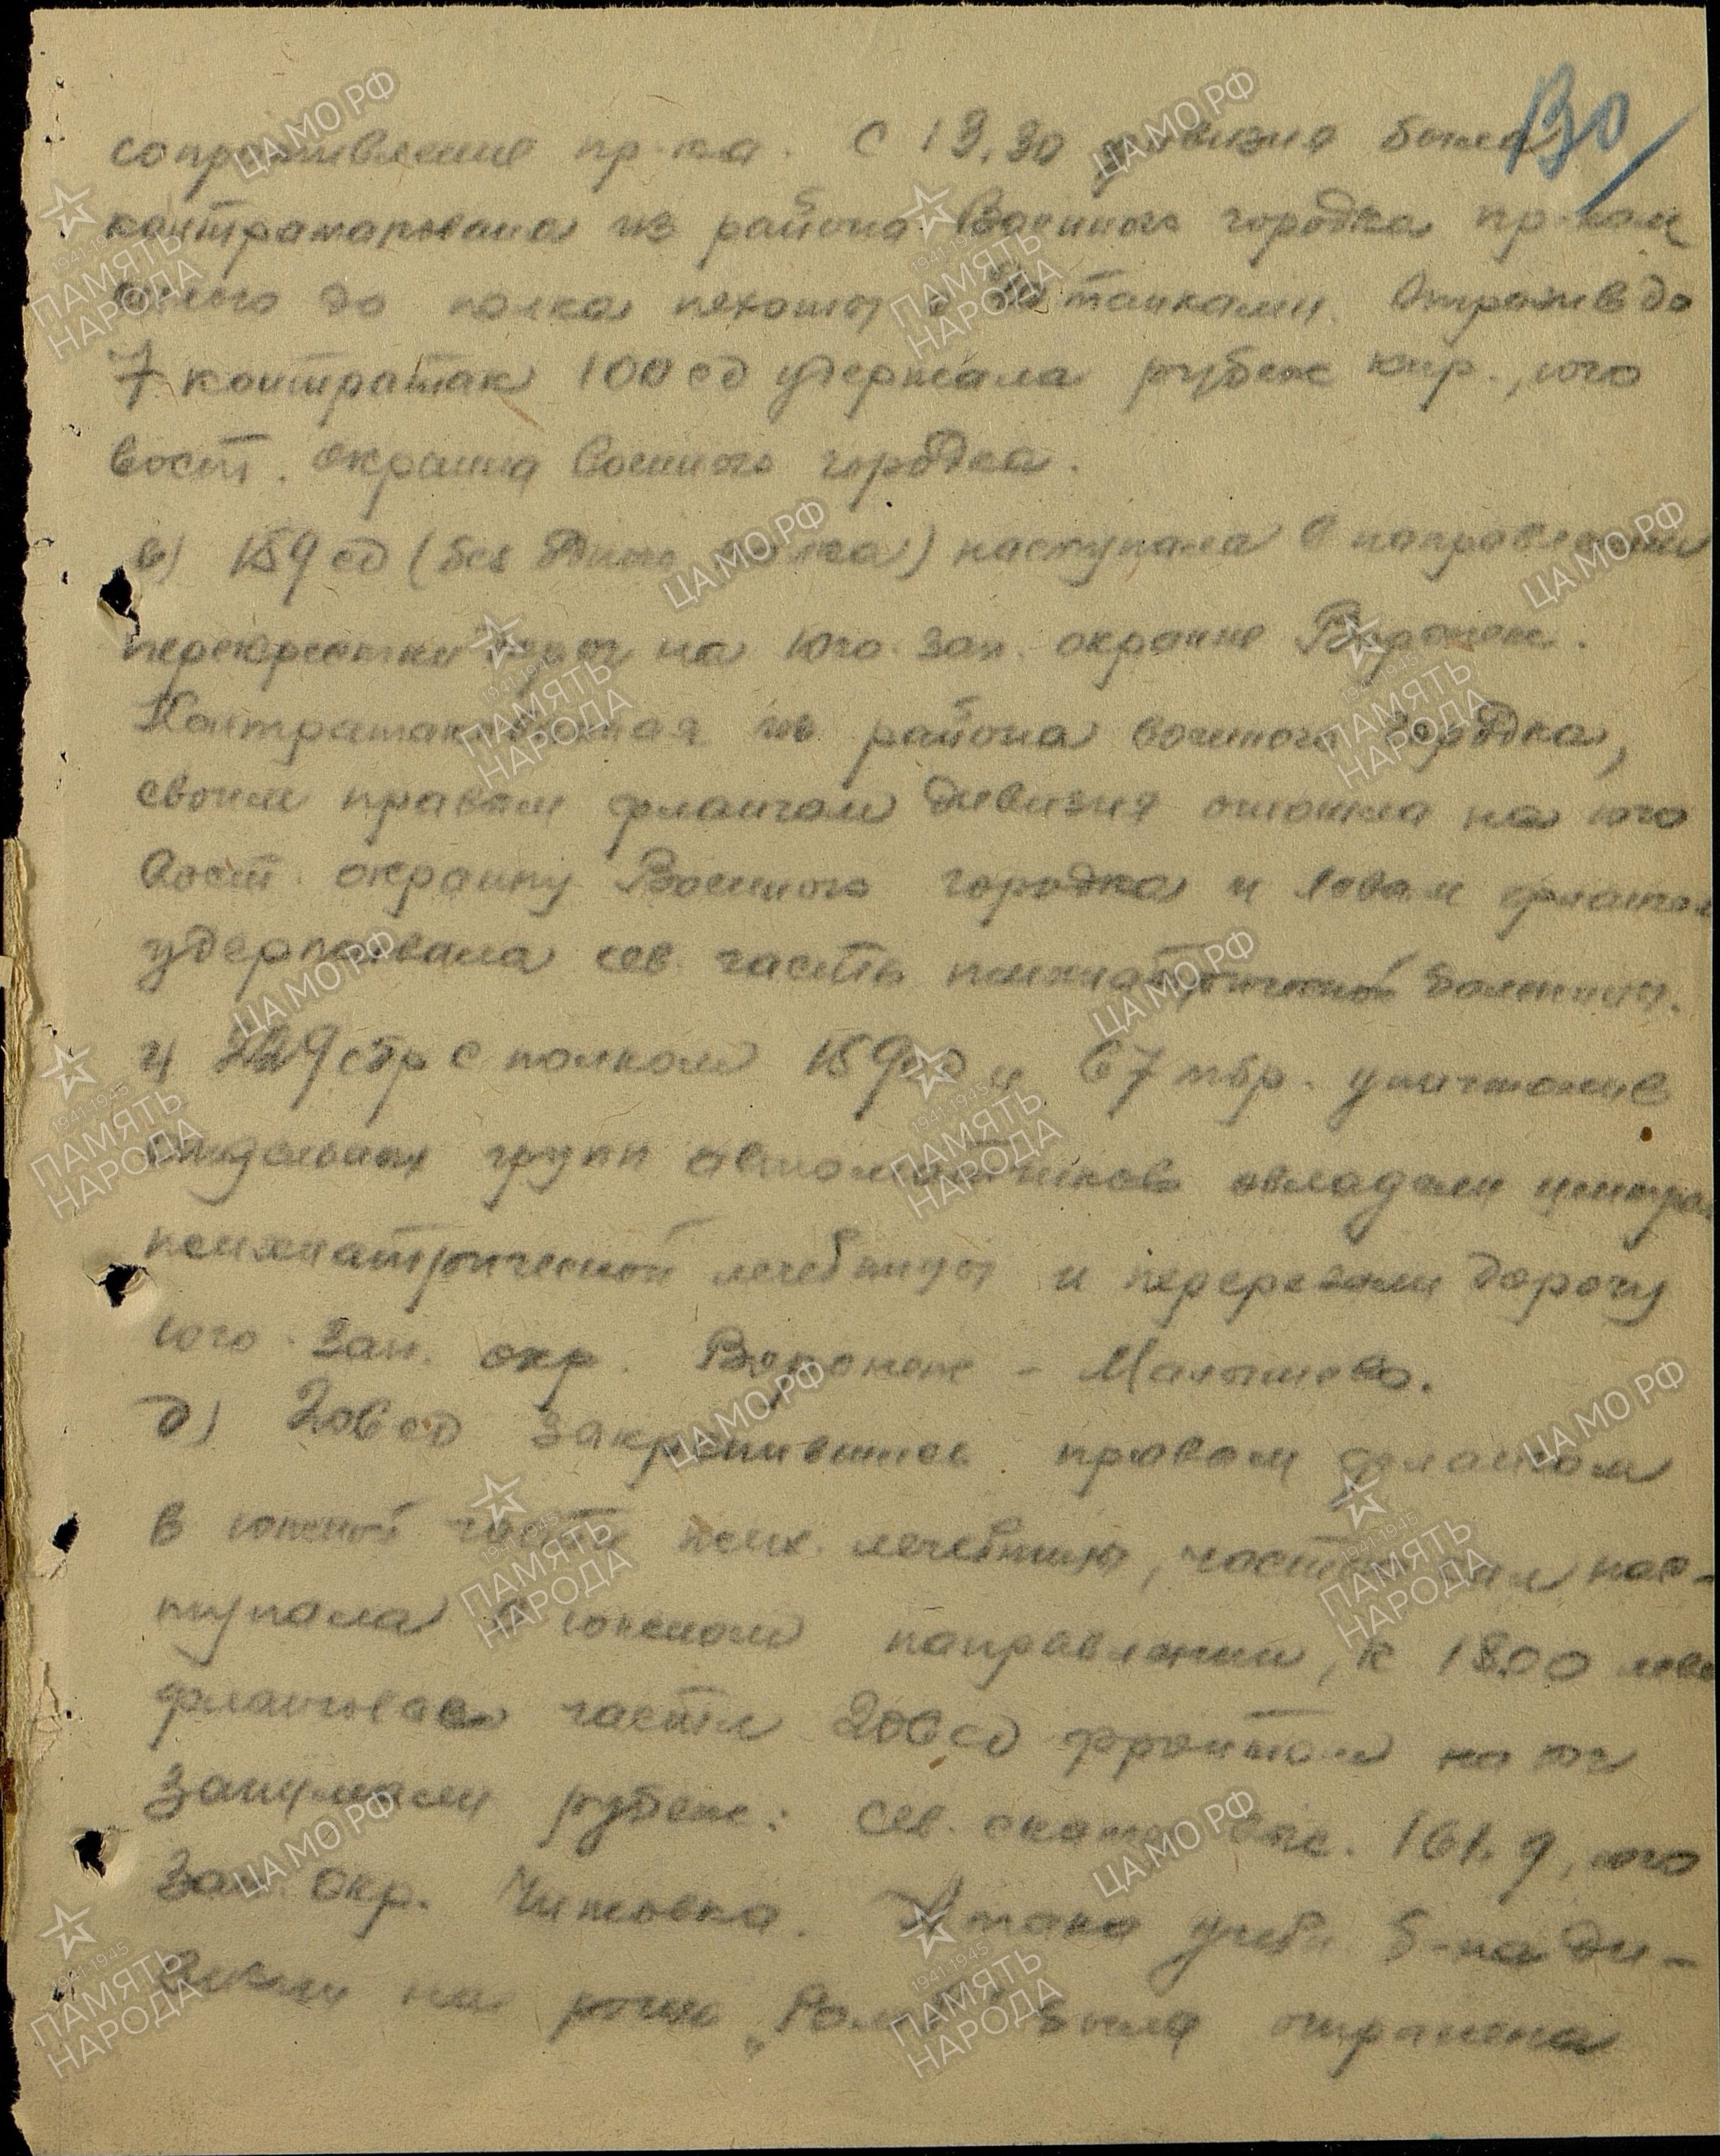 130
сопротивление пр-ка. С 13.30 дивизия была
контратакована из района Военного городка пр-ком
до полка пехоты с танками. Отразив до
7 контратак 100 сд удержала рубеж кир., юго
вост. окраина Военного городка.
в) 159 сд (без одного полка) наступала в направлении
перекрестка дорог на юго. зап. окраине Воронеж.
Контратакованная из района военного городка,
своим правым флангом дивизия отошла на юго
вост. окраину Военного городка и левым флангом
удерживала сев. часть психиатрической больницы.
г) 229 сбр с полком 159 сд и 67 тбр. уничтожив
отдельных групп автоматчиков овладели центра.
психиатрической лечебницы и перерезали дорогу
юго. зап. окр. Воронеж - Малышево.
д) 206 сд закрепившись правым флангом
в южной части псих. лечебницы, частью сил нас-
тупала в южном направлении, к 18.00 лево
фланговые части 206 сд фронтом на юг
занимали рубеж: сев. скаты выс. 161.9, юго
зап. окр. Чижовка. Атака учебн. б-на ди-
визии на рощу была отражена
ЦА МО РФ
1941-1945
ПАМЯТЬ
НАРОДА